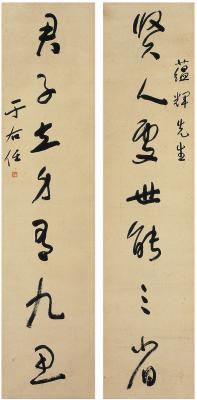 蘊輝先生
賢人處世能三省
君子立身有九思
于右任